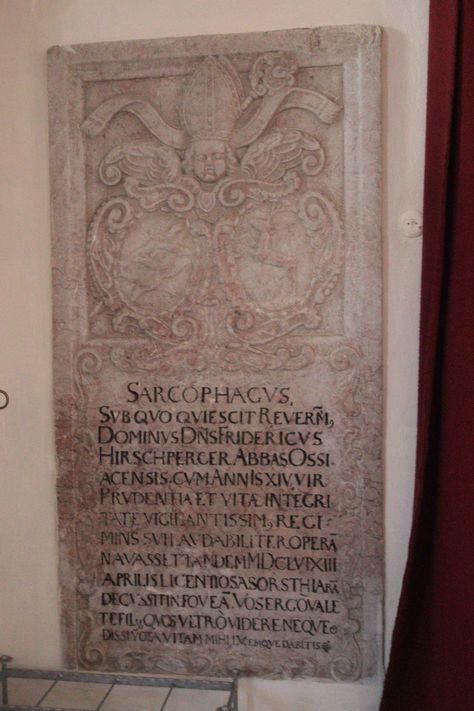 SARCOPHAGVS,
SVB QVO QVIESCIT REVERM̃,
DOMINVS DÑS FRIDERICVS
HIRSCHPERGER ABBAS OSSI
ACENSIS. CVM ANNIS XIV, VIR
PRVDENTIA ET VITÆ INTEGRI
TATE VIGILANTISSIM, REGI
MINS SVI LAVDABILITER OPERÃ
NAVASSET TANDEM MDCLVI XIII
APRILIS LICENTIOSA SORS
DECVSSIT IN FOVEÃ. VOS ERGO VALE
TE FILII QVOS VLTRO VIDERE NEQVE
VITAM MIHI DABITIS